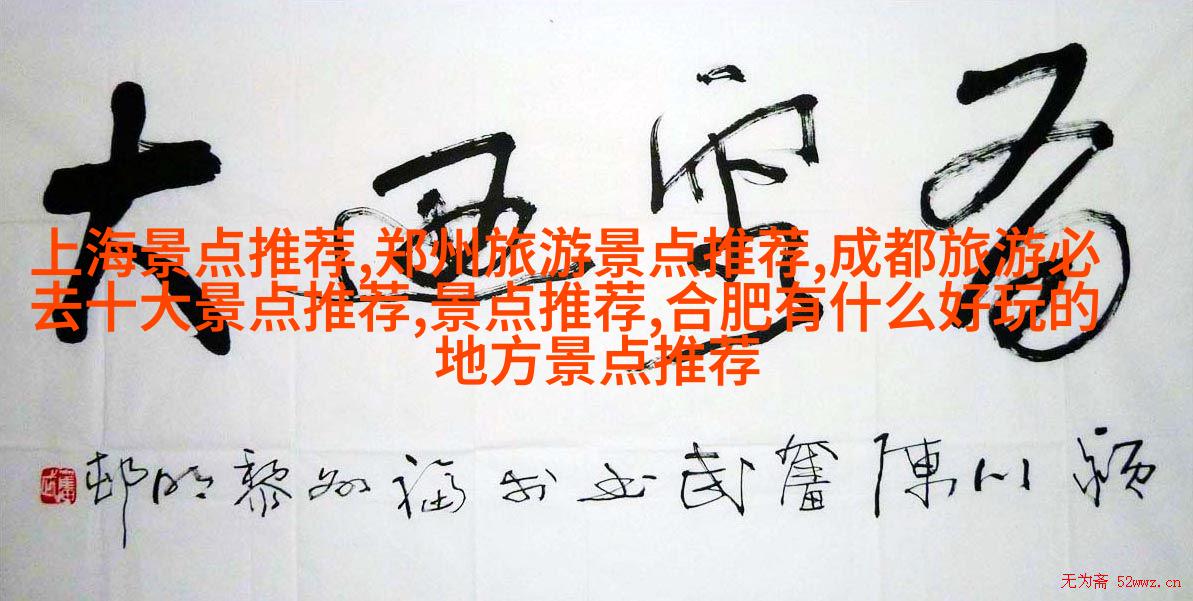 大
上海景点推荐,郑州旅游景点推荐,成都旅游必
去十大景点推荐,景点推荐,合肥有什么好玩的
地方景点推荐
川陳奮武书於福州黎明邨
无为斋 52wwz.cn